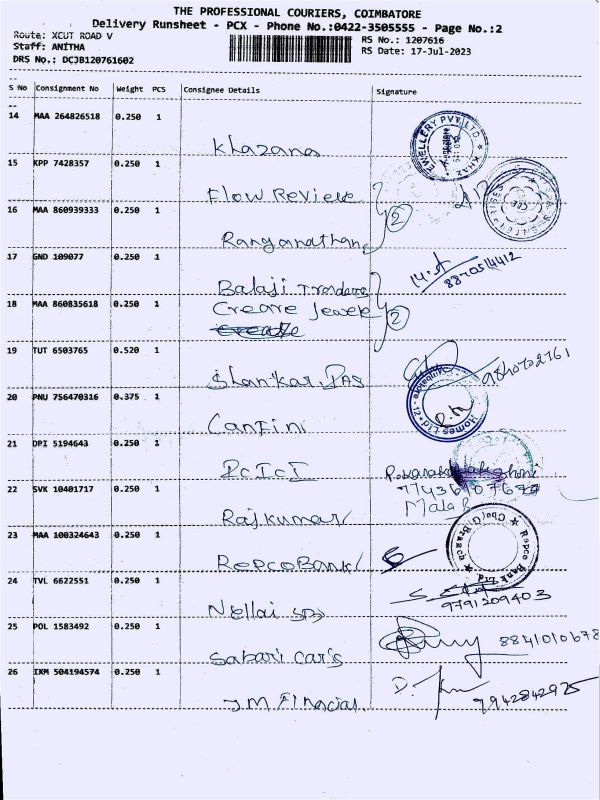 THE PROFESSIONAL COURIERS, COIMBATORE
Delivery Runsheet - PCX - Phone No.:0422-3505555 - Page No.:2
Route: XCUT ROAD V RS No.: 1207616
Staff: ANITHA RS Date: 17-Jul-2023
DRS No.: DCJB120761602
S No Consignment No Weight PCS Consignee Details Signature
14 MAA 264826518 0.250 1
Khazana
15 KPP 7428357 0.250 1
Flow Review
16 MAA 860939333 0.250 1
2
Ranganathan
17 GND 109077 0.250 1
8870514412
Balaji Trading
18 MAA 860835618 0.250 1
Creare Jewele
2
19 TUT 6503765 0.520 1
9840702761
Shankar IAS
20 PNU 756470316 0.375 1
CanFini
21 DPI 5194643 0.250 1
ICICI
22 SVK 10401717 0.250 1
Rajkumar
23 MAA 100324643 0.250 1
Repco Bank
RepcoBank
24 TVL 6622551 0.250 1
9791209403
Nellai
25 POL 1583492 0.250 1
8841010678
Sabari Car's
26 IKM 504194574 0.250 1
7942842975
J M Financial